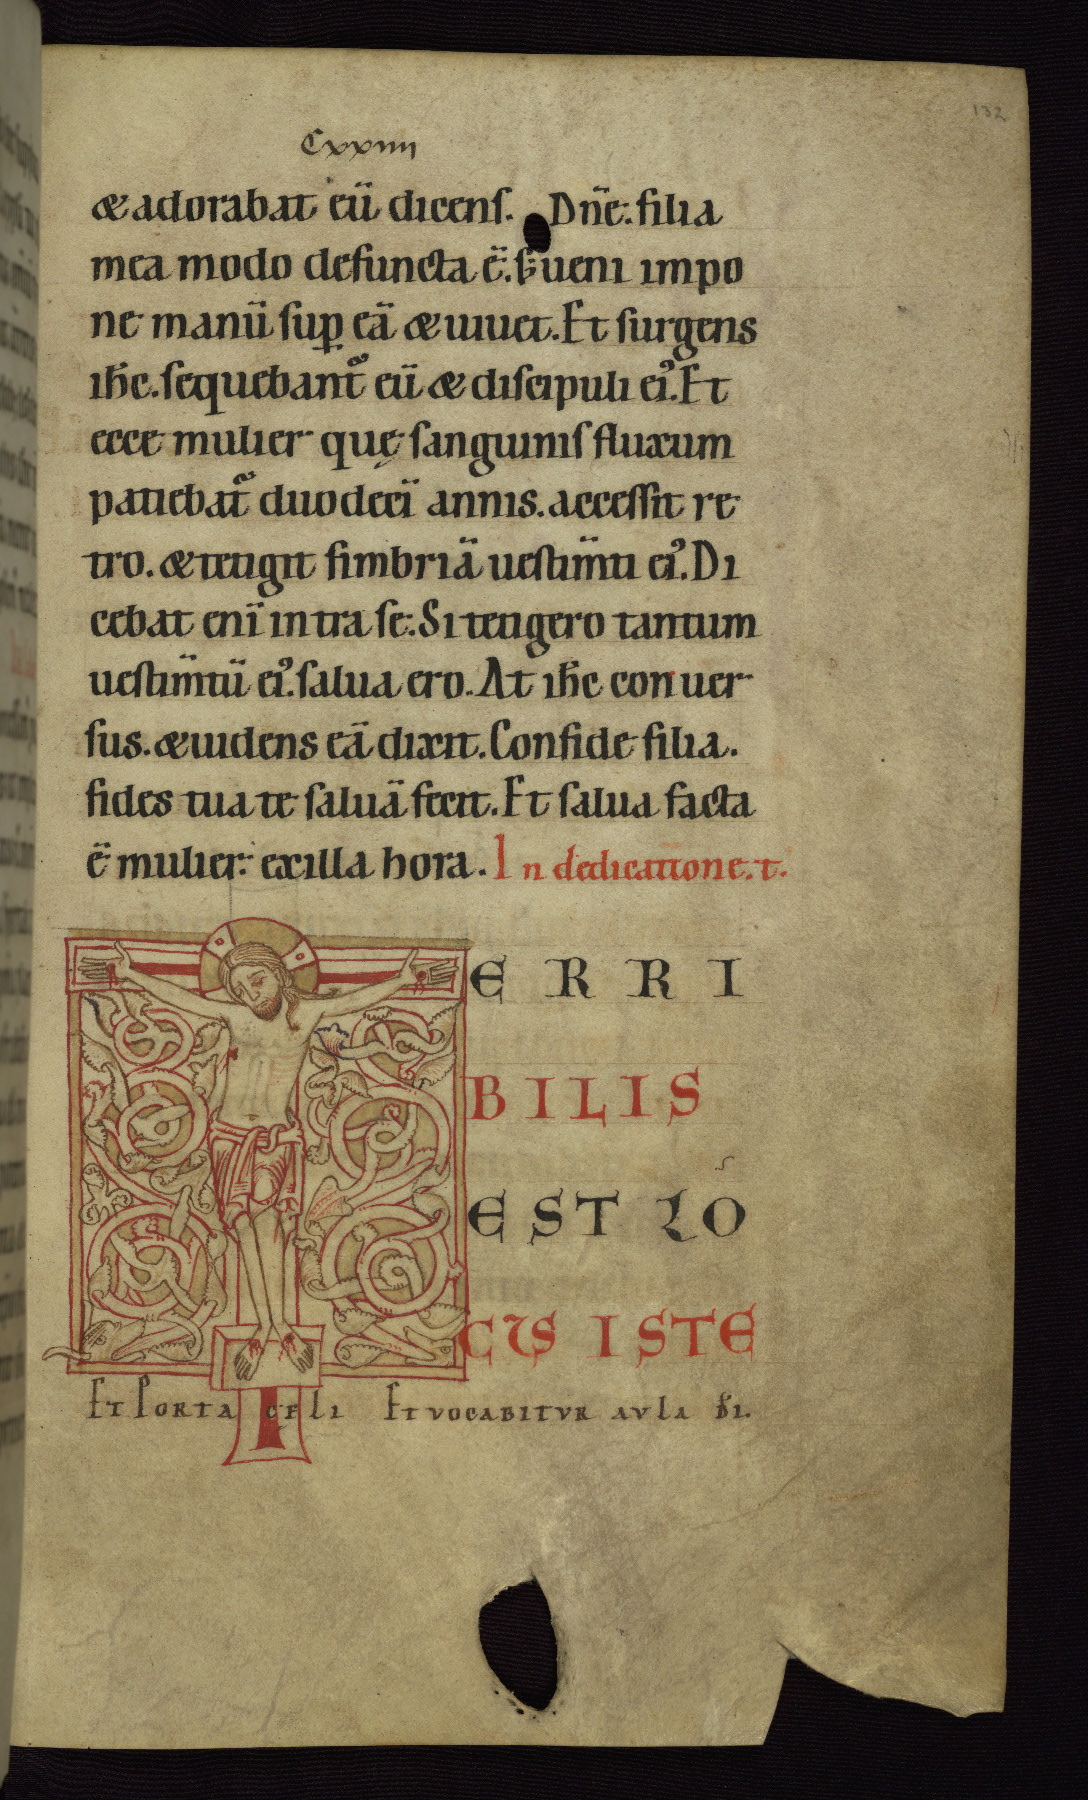 132
Cxxıııı
& adorabat eū dicenſ. Dn̄e. filia
mea modo defuncta ē. ſ; ueni impo
ne manū ſup eā & uiuet. Et ſurgens
ih̄c. ſequebant᷑ eū & diſcipuli eiꝰ. Et
ecce mulier quę ſanguiniſ fluxum
patiebat᷑ duodecī annıs. acceſſit re
tro. & tetigit fimbriā ueſtim̄ti eiꝰ. Di
cebat enī intra ſe. Si tetigero tantum
ueſtim̄tū eiꝰ. ſalua ero. At ih̄c conuer
ſus. & uidens eā dixit. Confide filia.
fides tua te ſaluā fecit. Et ſalua facta
ē mulier ex illa hora. In dedicatione. t.
TERRI
BILIS
EST LO
CUS ISTE
Et Porta celi Et vocabitvr avla dı̄.